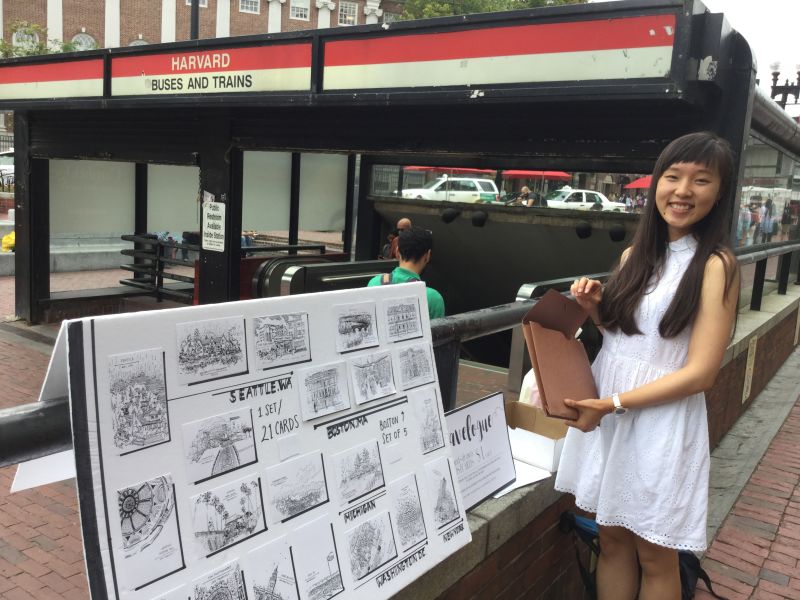 HARVARD
BUSES AND TRAINS
Public
Restroom
Available
Inside Station
SEATTLE, WA
1 SET/
21 CARDS
BOSTON, MA
BOSTON ↑
SET OF 5
MICHIGAN
WASHINGTON DC
NEW YORK
avelogue